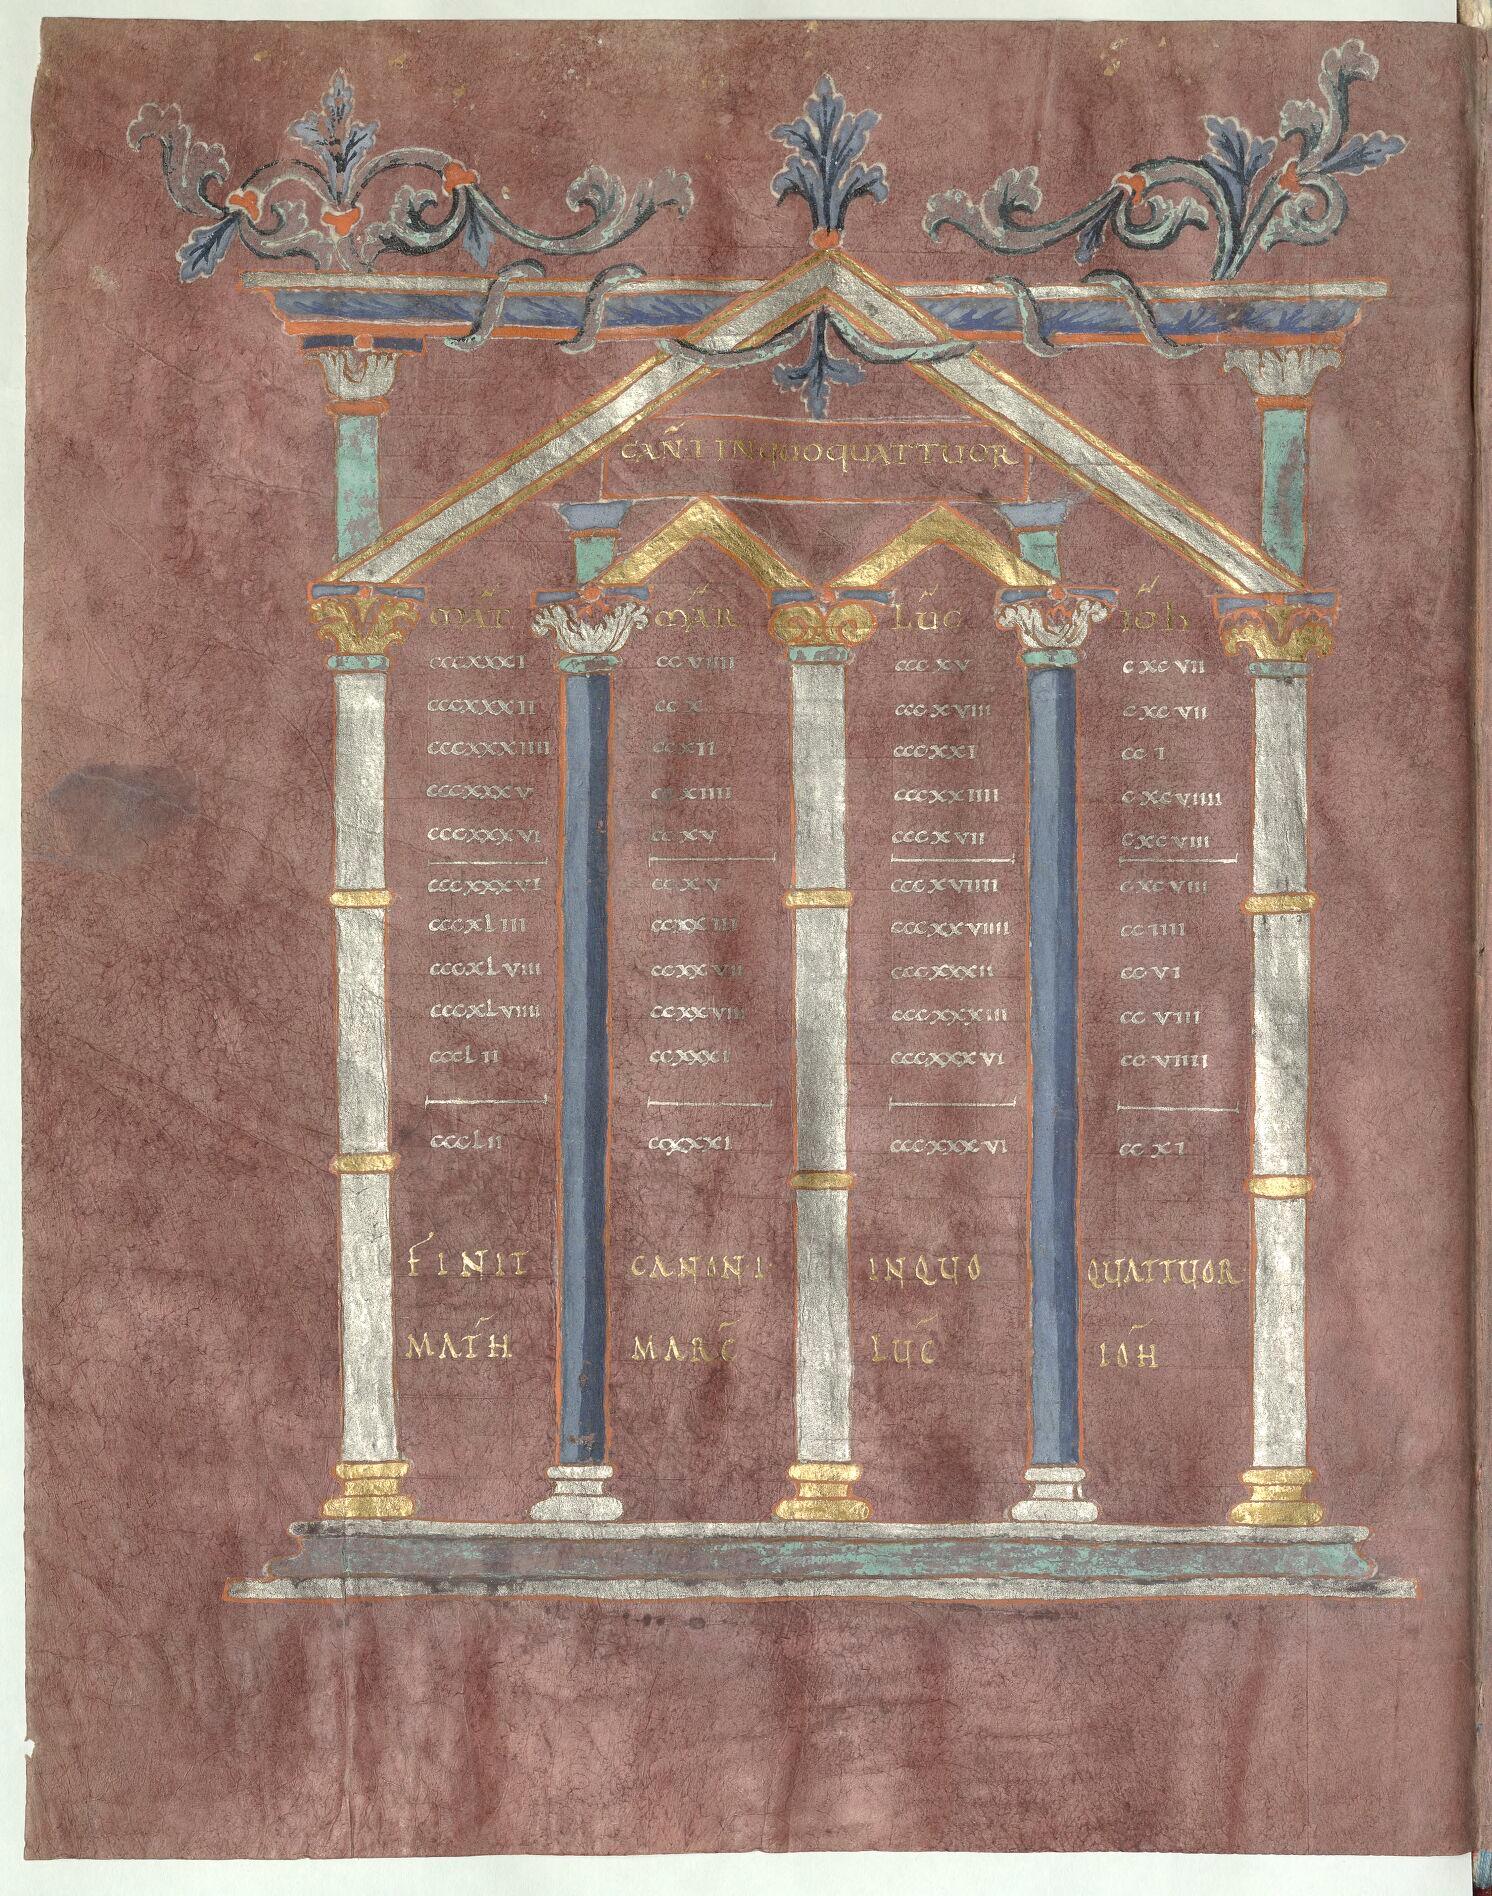 CAN̄·I INQUOQUATTUOR
MAT̄ MAR̄ LUC̄ IOH̄
CCCXXXI CCVIIII CCCXV CXCVII
CCCXXXII CCX CCCXVIII CXCVII
CCCXXXIIII CCXII CCCXXI CCI
CCCXXXV CCXIIII CCCXXIIII CXCVIIII
CCCXXXVI CCXV CCCXVII CXCVIII
CCCXXXVI CCXV CCCXVIIII CXCVIII
CCCXLIII CCXXIII CCCXXVIIII CCIIII
CCCXLVIII CCXXVII CCCXXXII CCVI
CCCXLVIIII CCXXVIII CCCXXXIII CCVIII
CCCLII CCXXXI CCCXXXVI CCVIIII
CCCLII CCXXXI CCCXXXVI CCXI
FINIT CANONI· INQUO QUATTUOR·
MATH̄ MARC̄ LUC̄ IOH̄